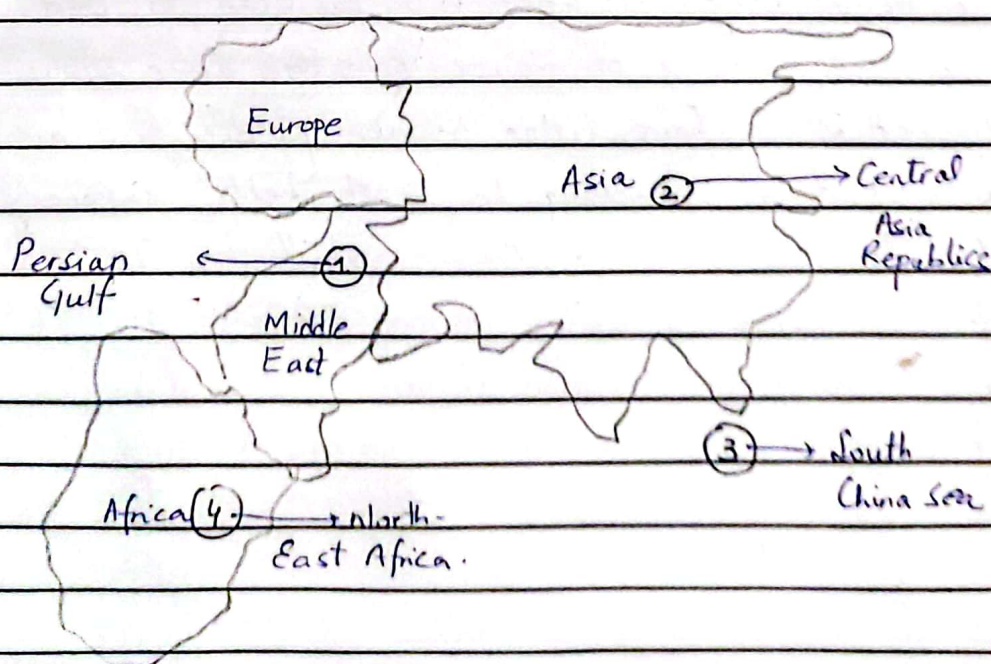 Europe
Asia (2) → Central
Asia
Republics
Persian ← (1)
Gulf
Middle
East
(3) → South
China sea
Africa (4) → North-
East Africa.